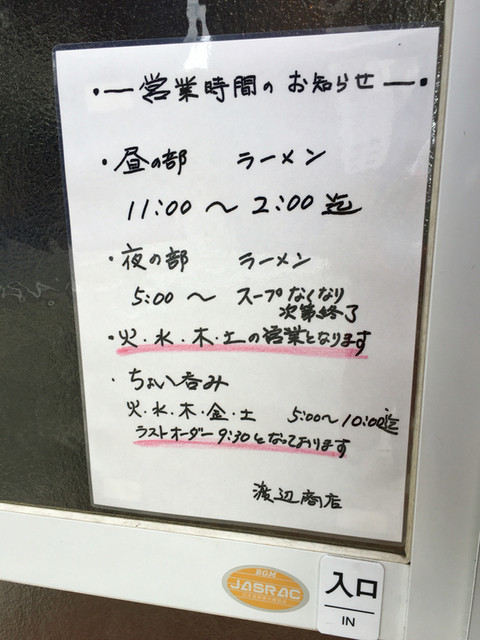 ・― 営業時間のお知らせ ―・
・昼の部 ラーメン
11:00 〜 2:00 迄
・夜の部 ラーメン
5:00 〜 スープなくなり
次第終了
・火・水・木・土の営業となります
・ちょい呑み
火・水・木・金・土 5:00〜10:00迄
ラストオーダー9:30となっております
渡辺商店
BGM
JASRAC
入口
IN